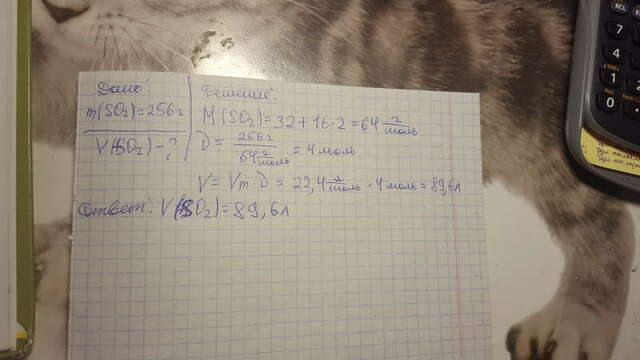 Дано:
m(SO₂)=256г
V(SO₂)-?
Решение:
M(SO₂)=32+16·2=64 г/моль
υ = 256г / 64 г/моль = 4 моль
V=Vm·υ = 22,4 л/моль · 4 моль = 89,6л
Ответ: V(SO₂)=89,6л
0
1
4
7
2
DEL